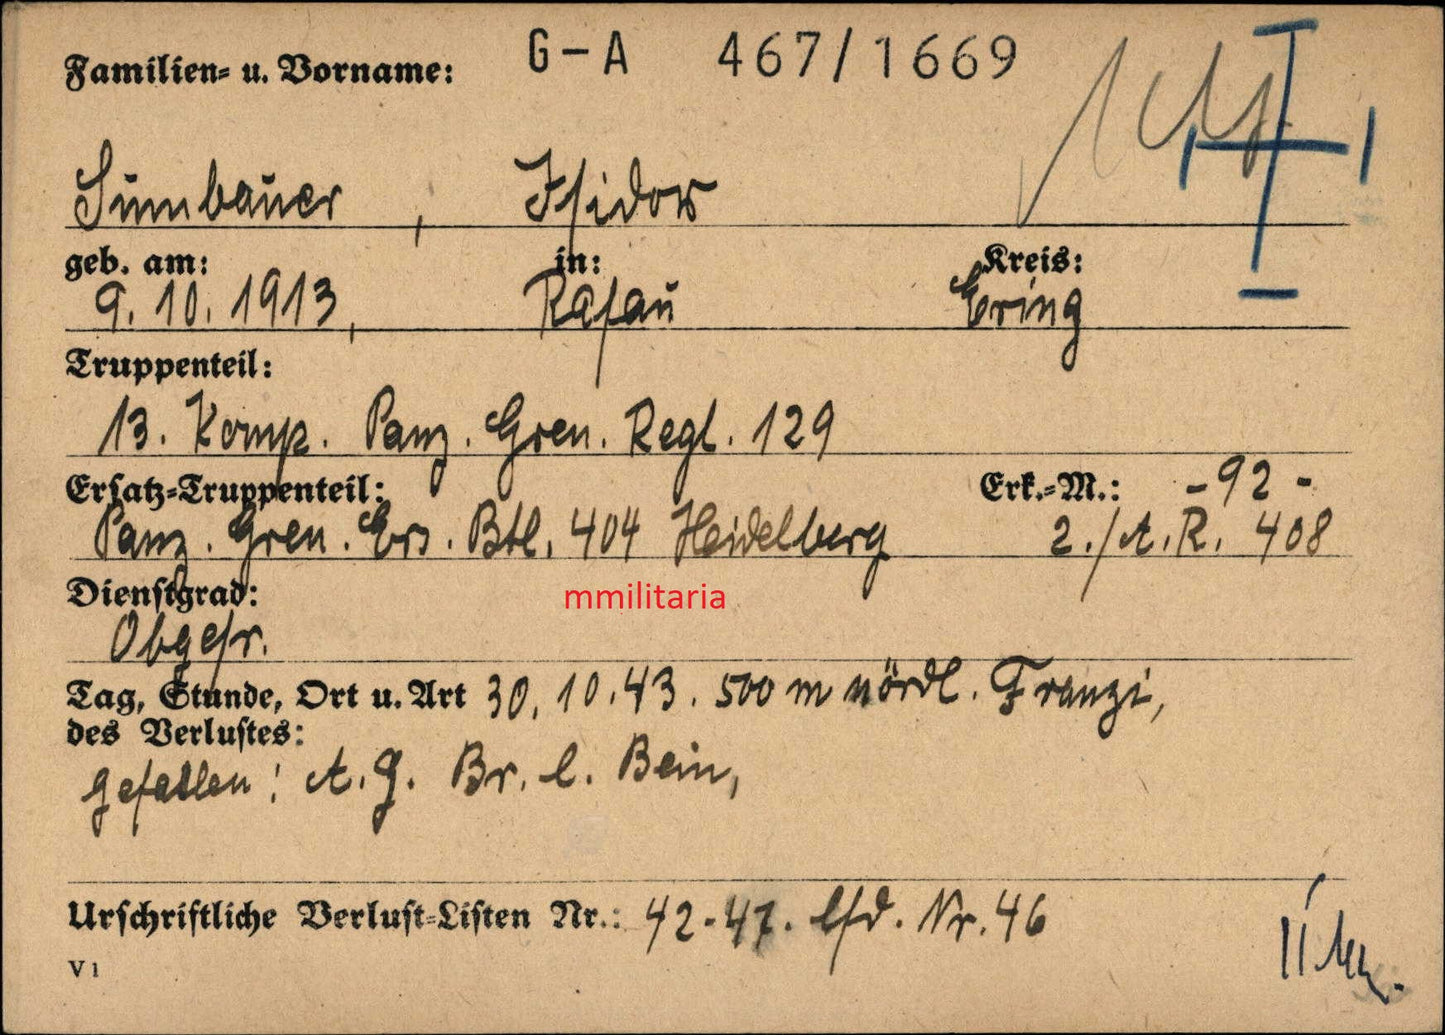 Familien- u. Vorname: G-A 467/1669
Sumbauer, Isidor
geb. am: in: Kreis:
9.10.1913, Rasau Ering
Truppenteil:
13. Komp. Panz. Gren. Regl. 129
Ersatz-Truppenteil: Erk.-M.: -92-
Panz. Gren. Ers. Btl. 404 Heidelberg 2./A.R. 408
Dienstgrad:
Obgefr.
mmilitaria
Tag, Stunde, Ort u. Art 30.10.43. 500 m nördl. Franzi,
des Verlustes:
gefallen: A.G. Br. l. Bein,
Urschriftliche Verlust-Listen Nr.: 42-47. lfd. Nr. 46
V 1